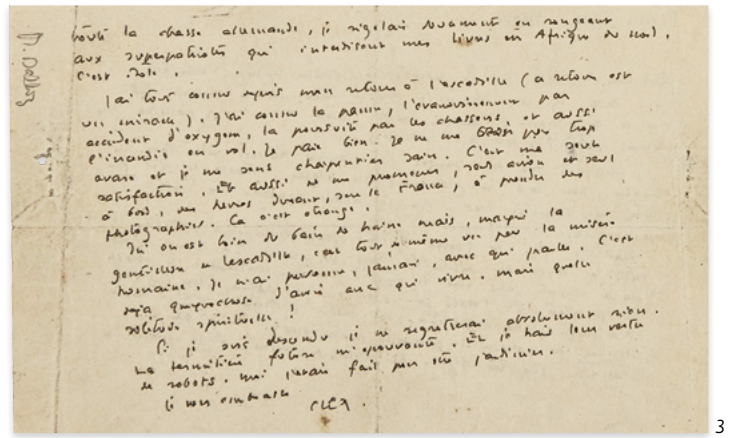 toute la chasse allemande, je rigolais doucement en songeant
aux superpatriotes qui interdisent mes livres en Afrique du Nord.
C'est drôle.
J'ai tout connu depuis mon retour à l'escadrille (ce retour est
un miracle). J'ai connu la panne, l'évanouissement par
accident d'oxygène, la poursuite par les chasseurs, et aussi
l'incendie en vol. Je paie bien. Je ne me crois pas trop
avare et je me sens charpentier sain. C'est ma seule
satisfaction. Et aussi de me promener, seul avion et seul
à bord, des heures durant, sur la France, à prendre des
photographies. Ça c'est étrange.
Ici on est loin du bain de haine mais, malgré la
gentillesse de l'escadrille, c'est tout de même un peu la misère
humaine. Je n'ai personne, jamais, avec qui parler. C'est
déjà quelque chose d'avoir avec qui vivre. Mais quelle
solitude spirituelle !
Si je suis descendu je ne regretterai absolument rien.
La termitière future m'épouvante. Et je hais leur vertu
de robots. Moi j'étais fait pour être jardinier.
Je vous embrasse
3